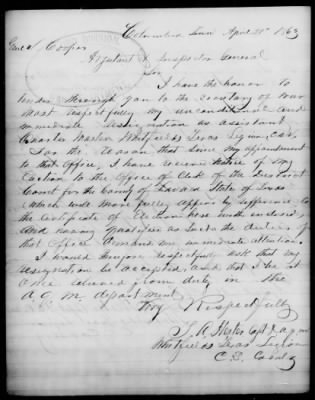 Columbia Tenn April 21st 1863
Genl S Cooper
Adjutant & Inspector General
Sir
I have the honor to
tender through you to the secretary of War
most respectfully my unconditional and
immediate resignation as assistant
Quarter master Whitfields Texas Legion, Cav.
For the reason that since my appointment
to that office, I have received notice of my
Election to the Office of Clerk of the District
Court for the County of Lavaca State of Texas
(which will more fully appear by reference to
the Certificate of Election here with enclosed,
And having qualified as such the duties of
that Office demand my immediate attention.
I would therefore respectfully ask that my
resignation be accepted and that I be at
once relieved from duty in the
a, q, m, department
Very Respectfully
Capt & a q m
Whitfields Texas Legion
C. S. Cavalry